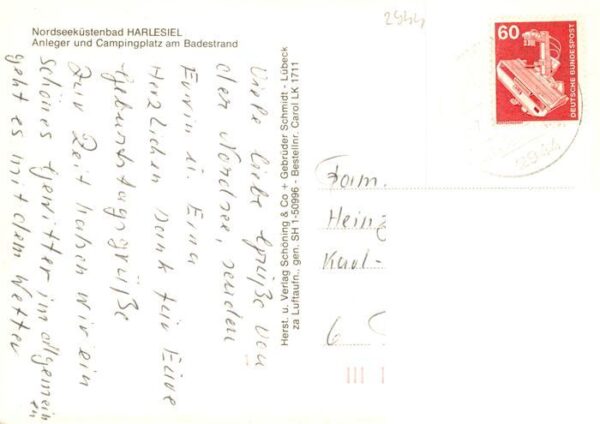 Nordseeküstenbad HARLESIEL
Anleger und Campingplatz am Badestrand
Viele liebe Grüße von
der Nordsee, senden
Erwin u. Erna
Herzlichen Dank für Eure
Geburtstagsgrüße
Zur Zeit haben wir ein
schönes Gewitter im allgemein
en
geht es mit dem Wetter
Herst. u. Verlag Schöning & Co + Gebrüder Schmidt - Lübeck
za Luftaufn., gen. SH 1-50996 - Bestellnr. Carol LK 1711
2944
60
DEUTSCHE BUNDESPOST
2944
Fam.
Heinz
Karl-
6